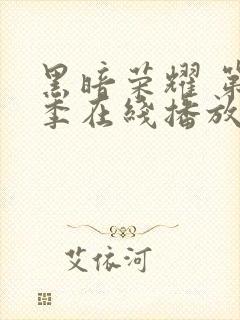 黑暗荣耀 第
季在线播放
艾依河